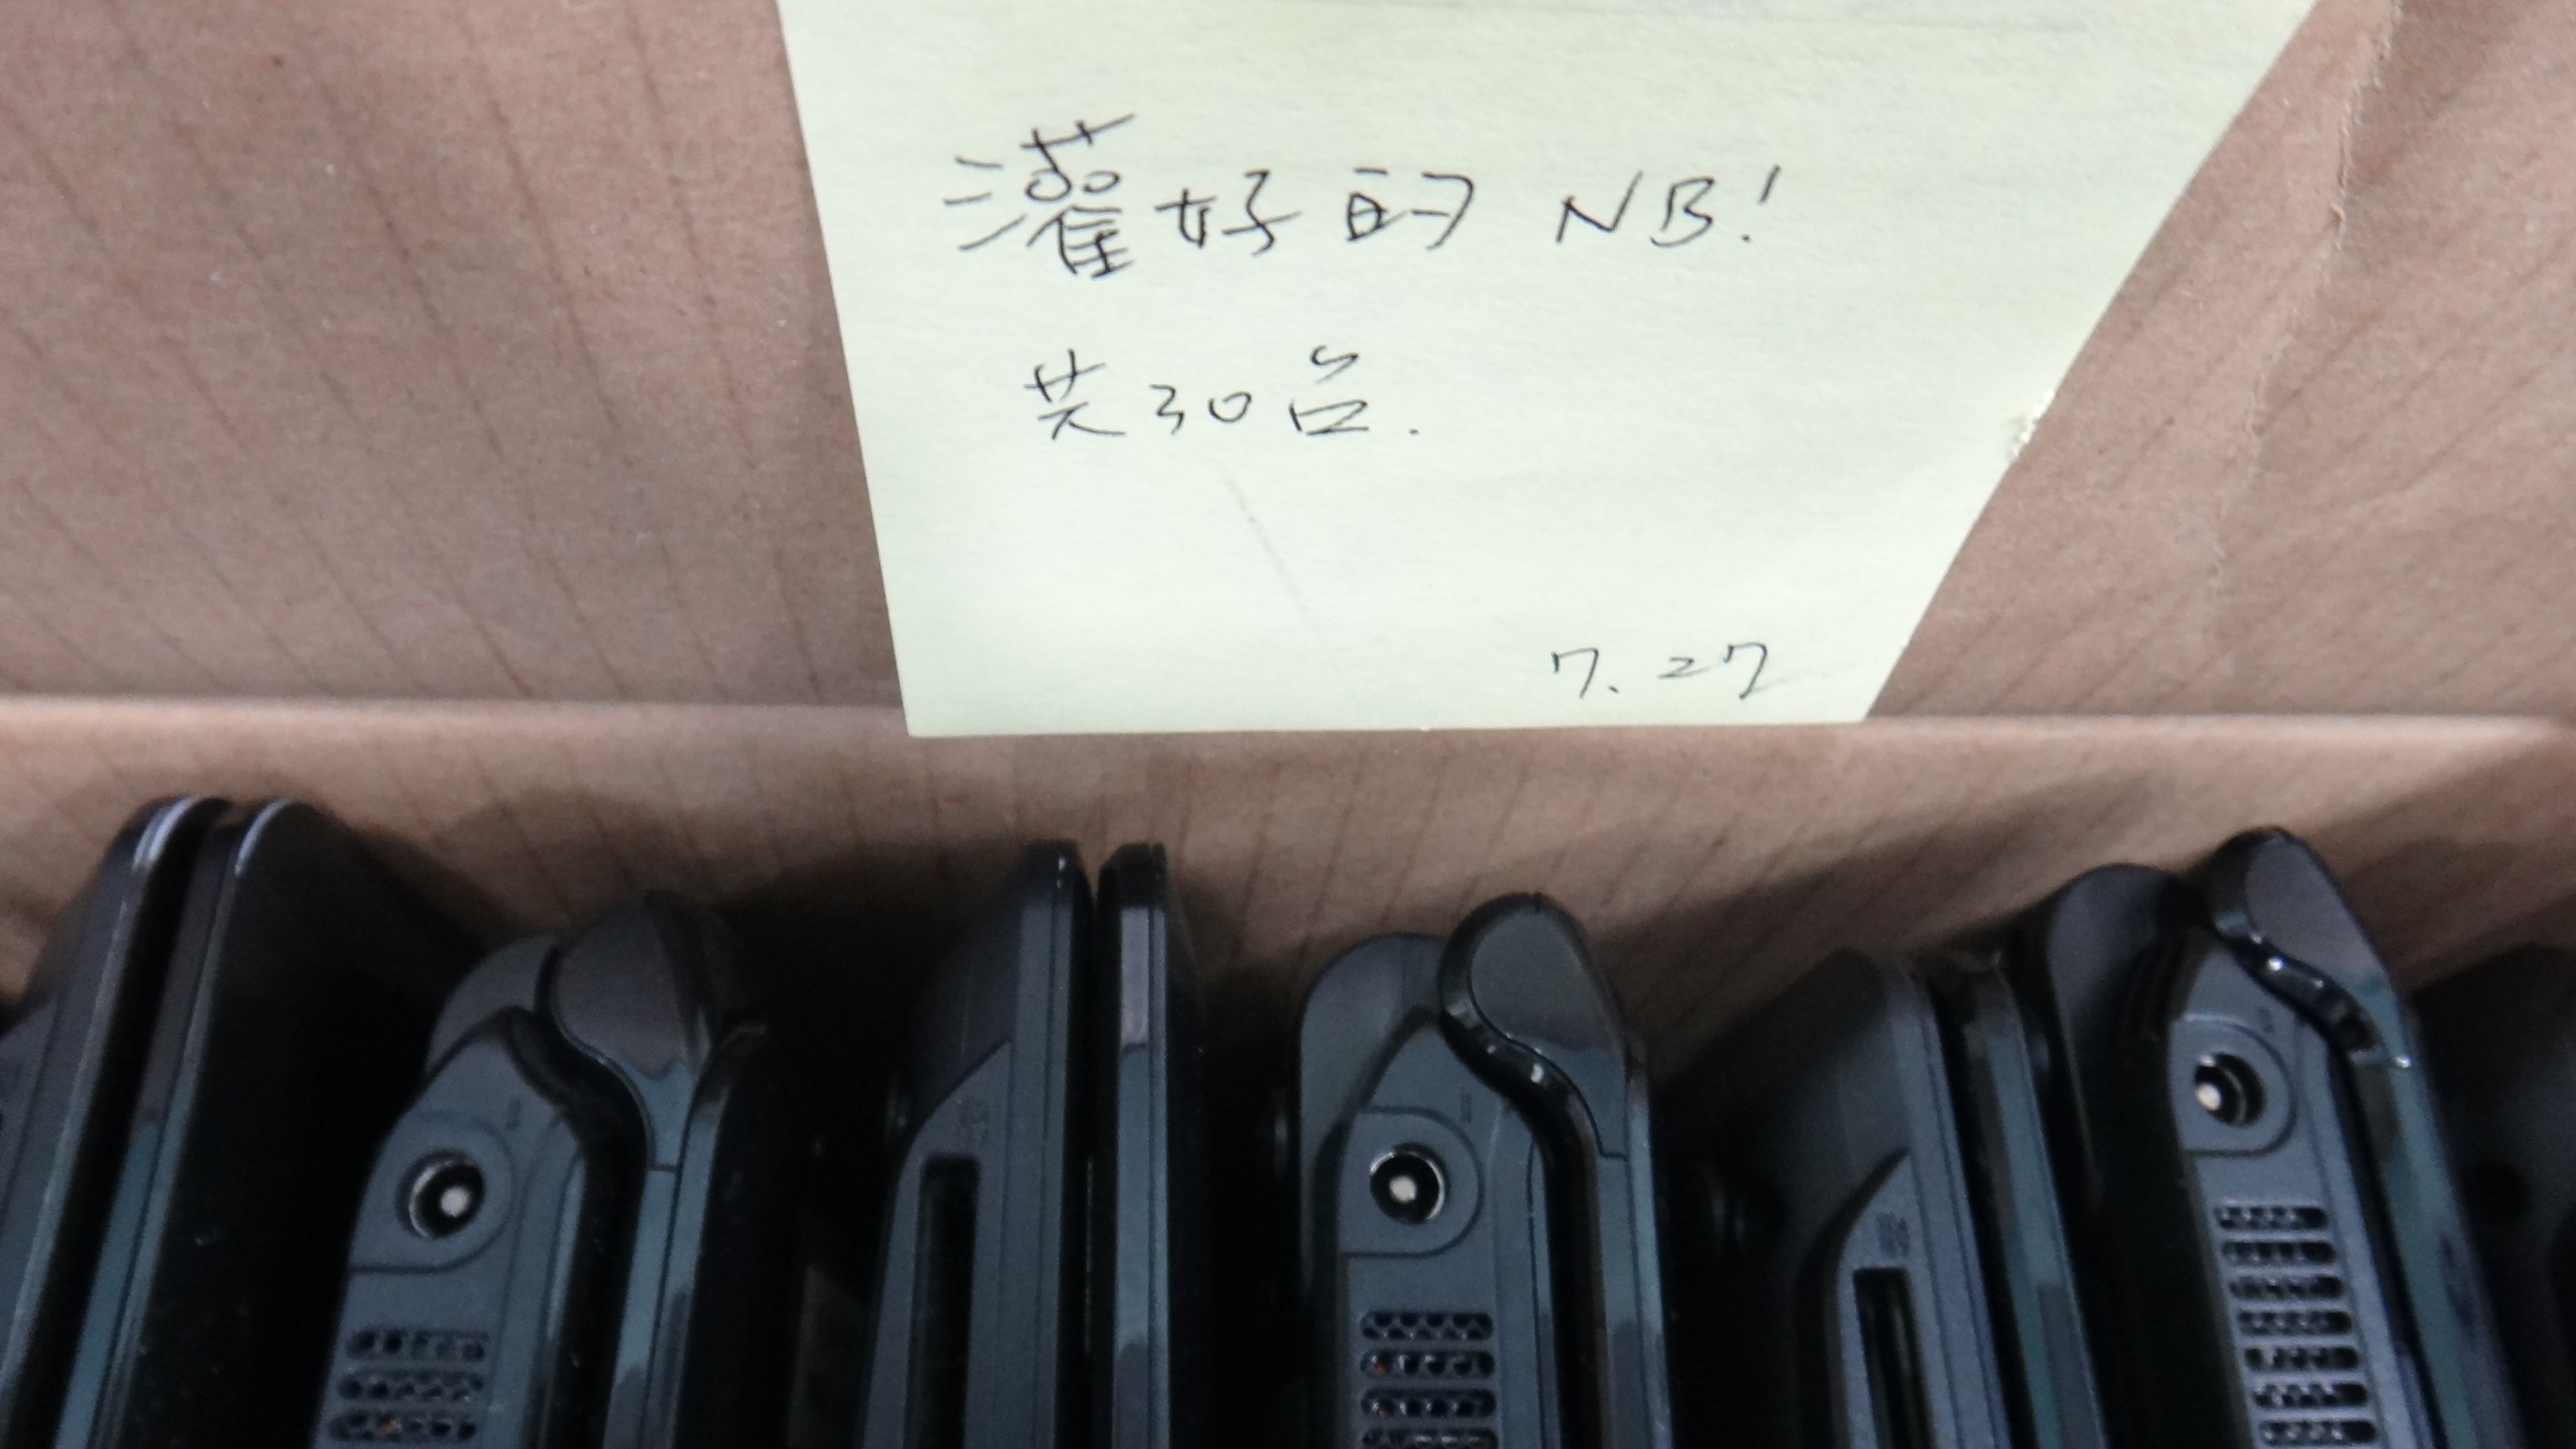 灌好的 NB!
共30台.
7.27